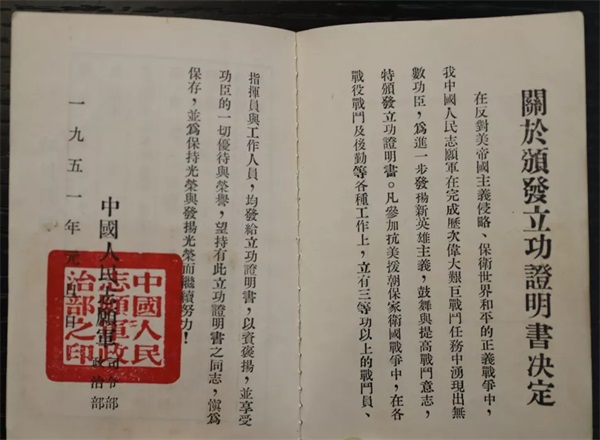 關於頒發立功證明書决定
在反對美帝國主義侵略、保衛世界和平的正義戰爭中，
我中國人民志願軍在完成歷次偉大艱巨戰鬥任務中湧現出無
數功臣，爲進一步發揚新英雄主義，鼓舞與提高戰鬥意志，
特頒發立功證明書。凡參加抗美援朝保家衛國戰爭中，在各
戰役戰鬥及後勤等各種工作上，立有三等功以上的戰鬥員、
指揮員與工作人員，均發給立功證明書，以資褒揚，並享受
功臣的一切優待與榮譽，望持有此立功證明書之同志，愼爲
保存，並爲保持光榮與發揚光榮而繼續努力！
中國人民志願軍
司令部
政治部
一九五一年元月日
中國人民
志願軍政
治部之印